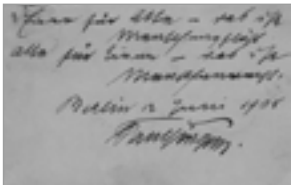 Einer für Alle – das ist
Menschenpflicht
alle für Einen – das ist
Menschenrecht.
Berlin 2 Juni